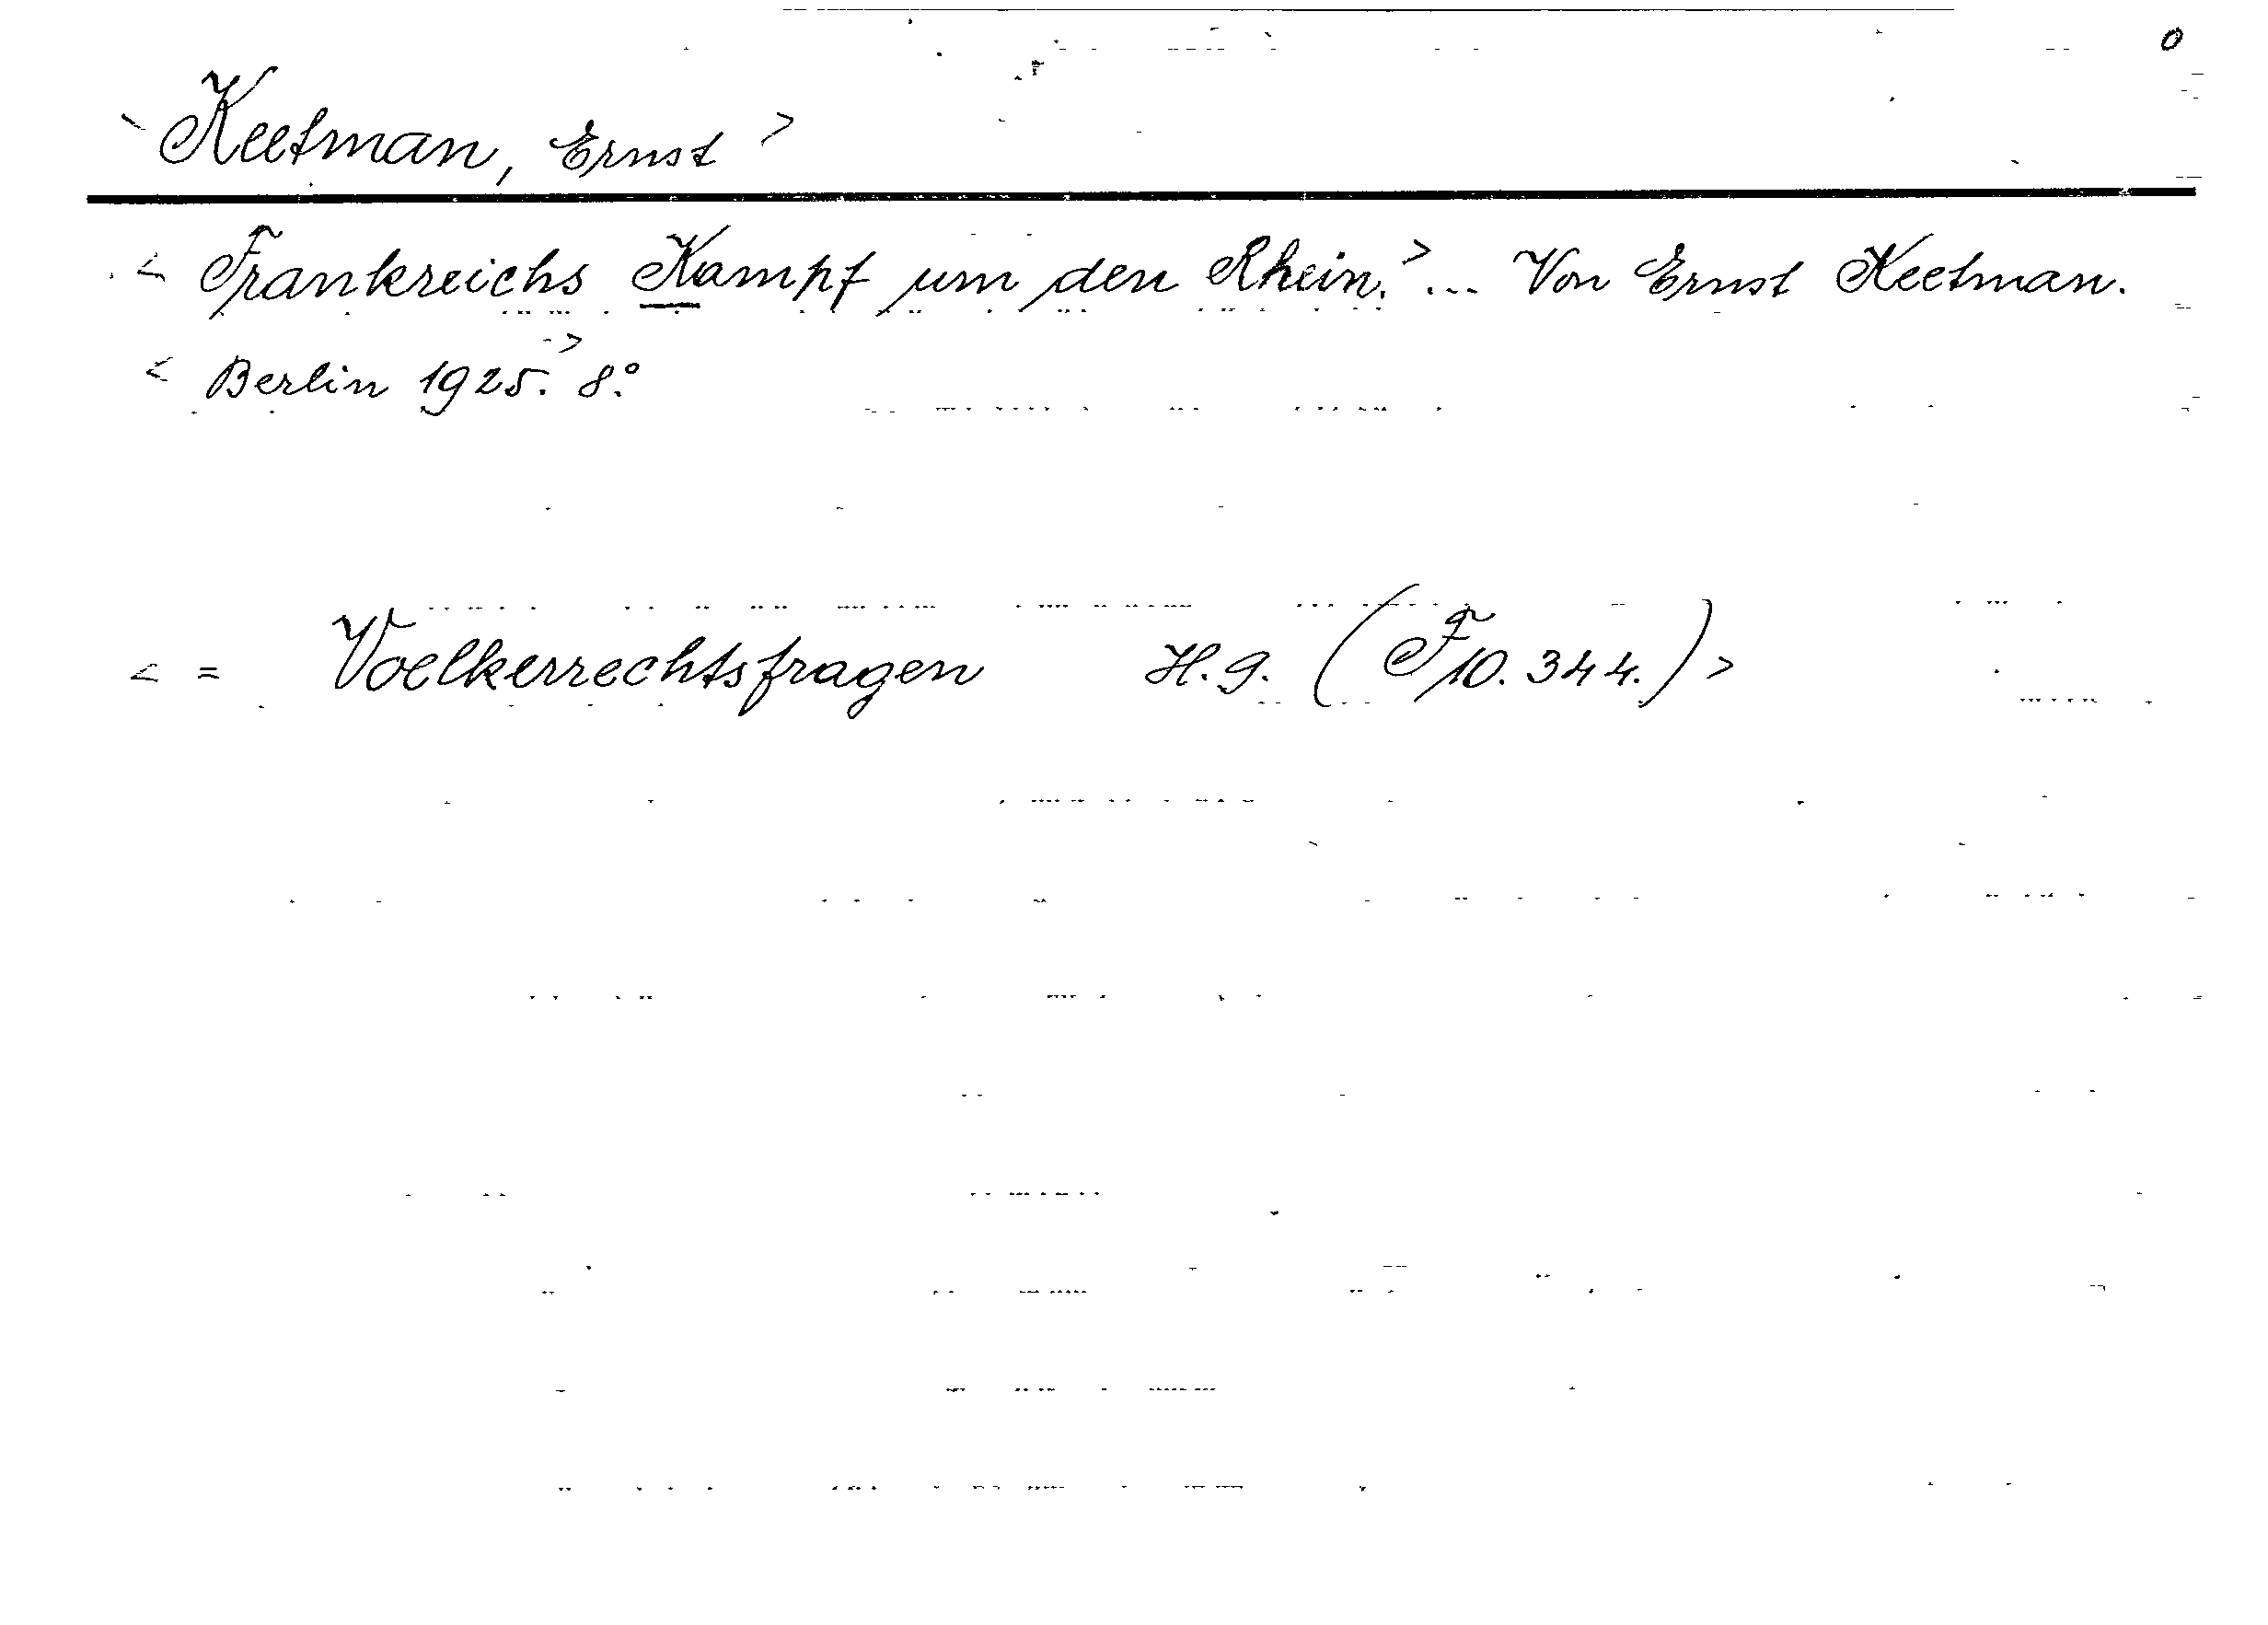 0
< Keetman, Ernst >
< Frankreichs Kampf um den Rhein. > ... Von Ernst Keetman.
< Berlin 1925. > 8°.
< = Voelkerrechtsfragen H. 9. (F 10. 344.) >